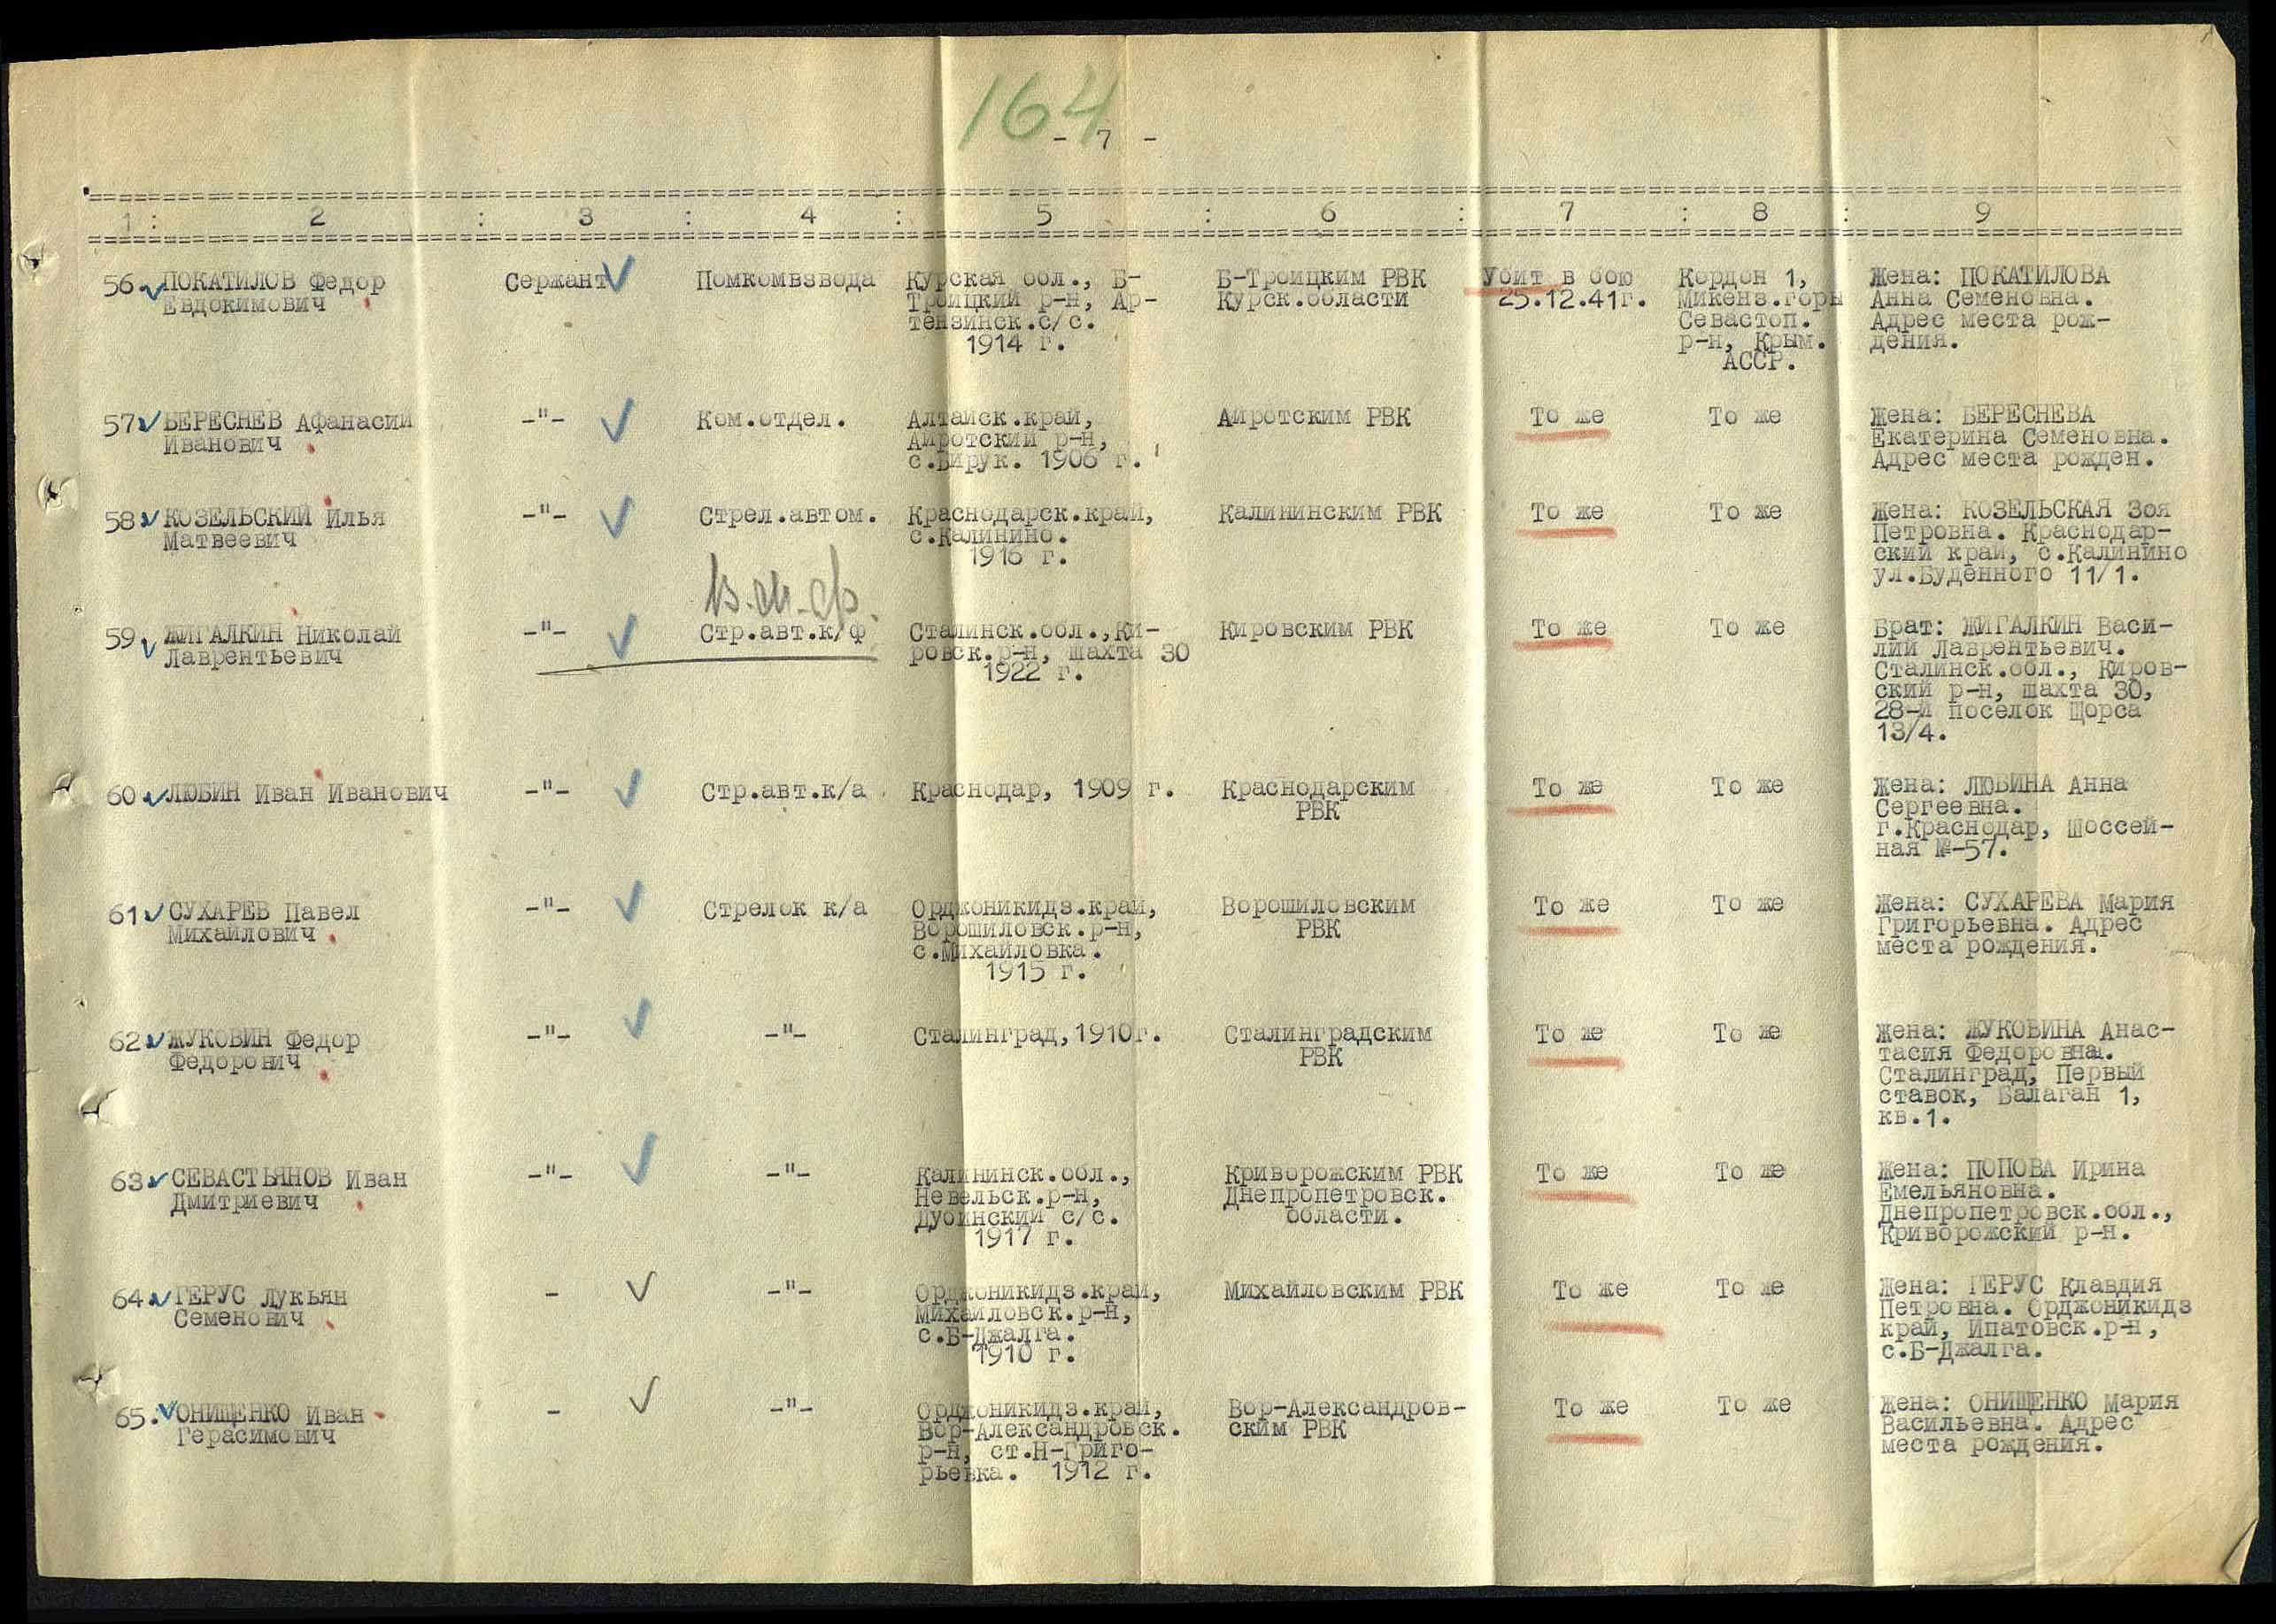 164
- 7 -
1 : 2 : 3 : 4 : 5 : 6 : 7 : 8 : 9
56. ПОКАТИЛОВ Федор Сержант Помкомвзвода Курская обл., Б- Б-Троицким РВК Убит в бою Кордон 1, Жена: ПОКАТИЛОВА
Евдокимович Троицкий р-н, Ар- Курск.области 25.12.41г. Микенз.горы Анна Семеновна.
тензинск.с/с. Севастоп. Адрес места рож-
1914 г. р-н, Крым. дения.
АССР.
57 БЕРЕСНЕВ Афанасий -"- Ком.отдел. Алтайск.край, Айротским РВК То же То же Жена: БЕРЕСНЕВА
Иванович Айротский р-н, Екатерина Семеновна.
с.Бирук. 1906 г. Адрес места рожден.
58 КОЗЕЛЬСКИЙ Илья -"- Стрел.автом. Краснодарск.край, Калининским РВК То же То же Жена: КОЗЕЛЬСКАЯ Зоя
Матвеевич с.Калинино. Петровна. Краснодар-
1916 г. ский край, с.Калинино
ул.Буденного 11/1.
59 ЖИГАЛКИН Николай -"- Стр.авт.к/ф Сталинск.обл.,Ки- Кировским РВК То же То же Брат: ЖИГАЛКИН Васи-
Лаврентьевич ровск.р-н, шахта 30 лий Лаврентьевич.
1922 г. Сталинск.обл., Киров-
ский р-н, шахта 30,
28-й поселок Щорса
13/4.
60 ЛЮБИН Иван Иванович -"- Стр.авт.к/а Краснодар, 1909 г. Краснодарским То же То же Жена: ЛЮБИНА Анна
РВК Сергеевна.
г.Краснодар, Шоссей-
ная №-57.
61 СУХАРЕВ Павел -"- Стрелок к/а Орджоникидз.край, Ворошиловским То же То же Жена: СУХАРЕВА Мария
Михайлович Ворошиловск.р-н, РВК Григорьевна. Адрес
с.Михайловка. места рождения.
1915 г.
62 ЖУКОВИН Федор -"- -"- Сталинград,1910г. Сталинградским То же То же Жена: ЖУКОВИНА Анас-
Федорович РВК тасия Федоровна.
Сталинград, Первый
ставок, Балаган 1,
кв.1.
63 СЕВАСТЬЯНОВ Иван -"- -"- Калининск.обл., Криворожским РВК То же То же Жена: ПОПОВА Ирина
Дмитриевич Невельск.р-н, Днепропетровск. Емельяновна.
Дубинский с/с. области. Днепропетровск.обл.,
1917 г. Криворожский р-н.
64 ГЕРУС Лукьян - -"- Орджоникидз.край, Михайловским РВК То же То же Жена: ГЕРУС Клавдия
Семенович Михайловск.р-н, Петровна. Орджоникидз
с.Б-Джалга. край, Ипатовск.р-н,
1910 г. с.Б-Джалга.
65. ОНИЩЕНКО Иван - -"- Орджоникидз.край, Вор-Александров- То же То же Жена: ОНИЩЕНКО Мария
Герасимович Вор-Александровск. ским РВК Васильевна. Адрес
р-н, ст.Н-Григо- места рождения.
рьевка. 1912 г.